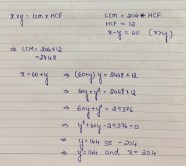 x × y = LCM × HCF
LCM = 204 * HCF
HCF = 12
x - y = 60 (x > y)
⇒ LCM = 204 × 12
= 2448
x = 60 + y
⇒ (60 + y) y = 2448 × 12
⇒ 60y + y² = 2448 × 12
⇒ 60y + y² = 29376
⇒ y² + 60y - 29376 = 0
⇒ y = 144 or -204
⇒ y = 144 and x = 204